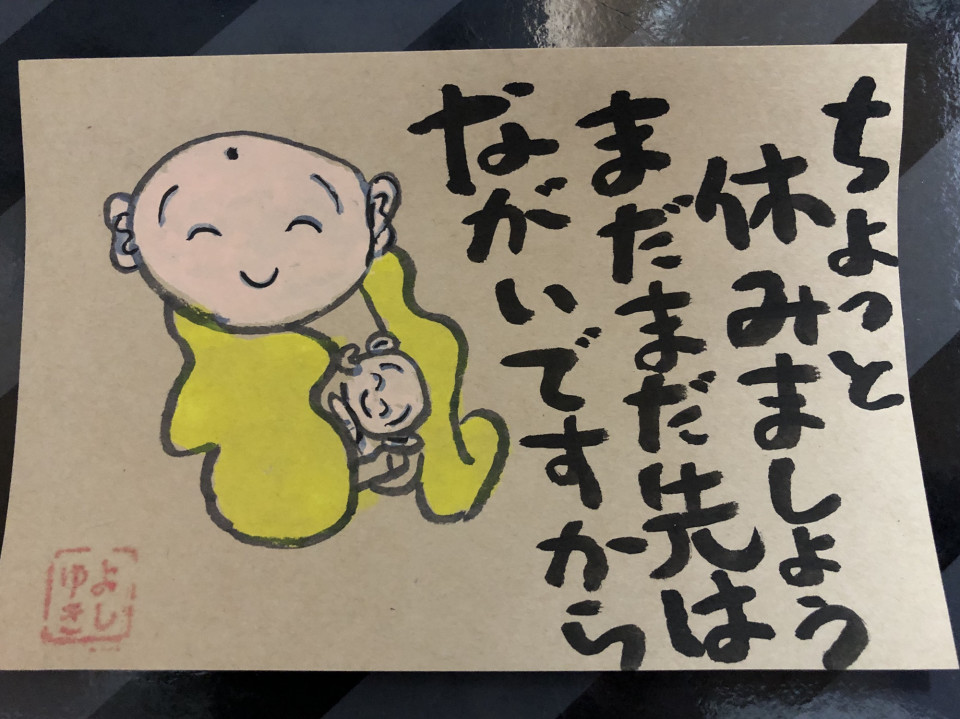 ちょっと
休みましょう
まだまだ先は
ながいですから
よし
ゆき